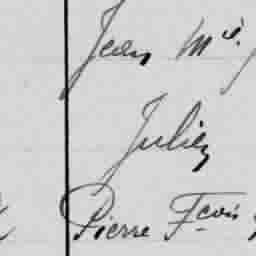 Jean Mie
Julien
Pierre Fcois